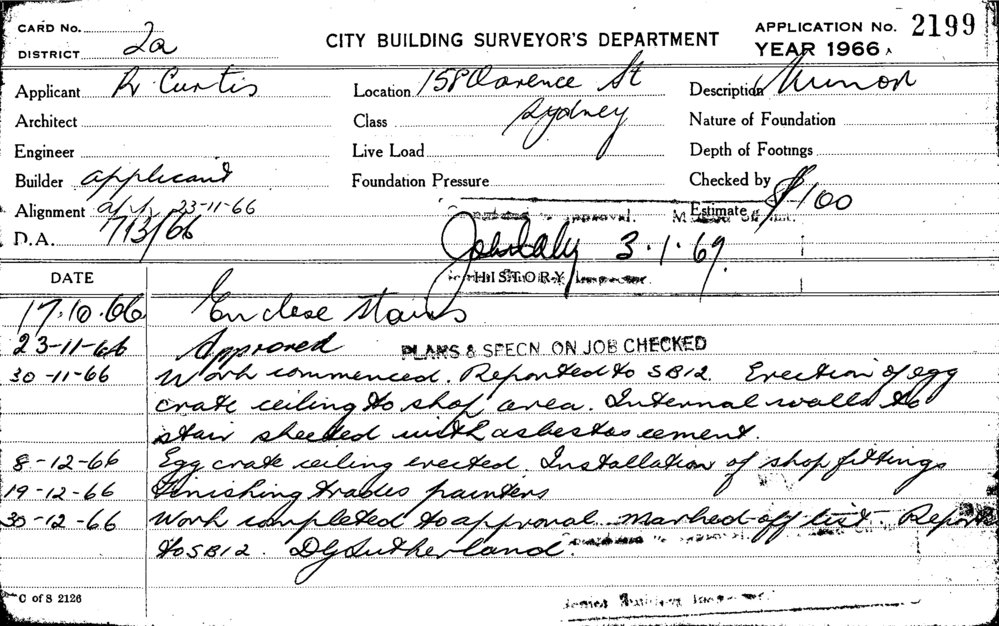 CARD No.
DISTRICT 2a
CITY BUILDING SURVEYOR'S DEPARTMENT
APPLICATION No. 2199
YEAR 1966 A
Applicant R Curtis
Location 158 Clarence St
Description Minor
Architect
Class Sydney
Nature of Foundation
Engineer
Live Load
Depth of Footings
Builder applicant
Foundation Pressure
Checked by
Alignment app. 23-11-66
Estimate $100
to approval. off list.
D.A. 713/66
John Daly 3.1.67
HISTORY
Inspector.
DATE
17.10.66 Enclose stairs
23-11-66 Approved PLANS & SPECN. ON JOB CHECKED
30-11-66 Work commenced. Reported to SB12. Erection of egg
crate ceiling to shop area. Internal walls to
stair sheeted with asbestos cement.
8-12-66 Egg crate ceiling erected. Installation of shop fittings
19-12-66 Finishing trades painters
30-12-66 Work completed to approval marked-off list. Report
to SB12. DG Sutherland.
C of S 2126
Building Inspector